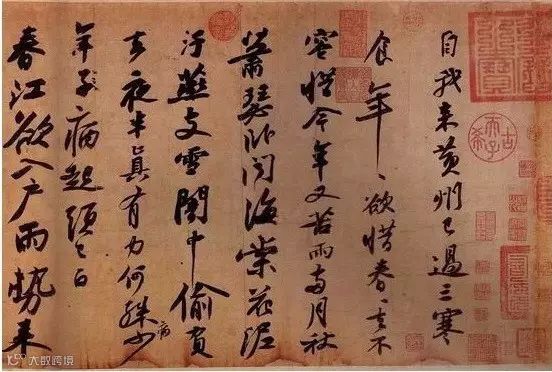 自我来黄州已過三寒
食年〻欲惜春〻去不
容惜今年又苦雨兩月秋
蕭瑟卧聞海棠花泥
汙燕支雪闇中偷負
去夜半真有力何殊少
病
年子病起須已白
春江欲入户雨勢来
古希天子
大数跨境